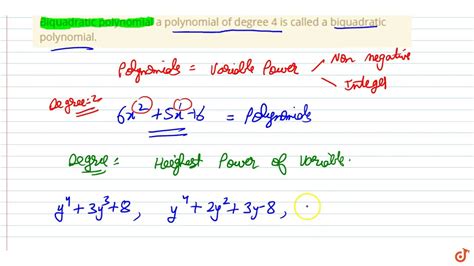 Biquadratic polynomial a polynomial of degree 4 is called a biquadratic
polynomial.
Polynomials = Variable Power
Non negative
Integer
Degree=2
6x² + 5x¹ + 6 = Polynomials
Degree = Heighest Power of Variable.
y⁴ + 3y³ + 8 , y⁴ + 2y² + 3y - 8 ,
doubtnut